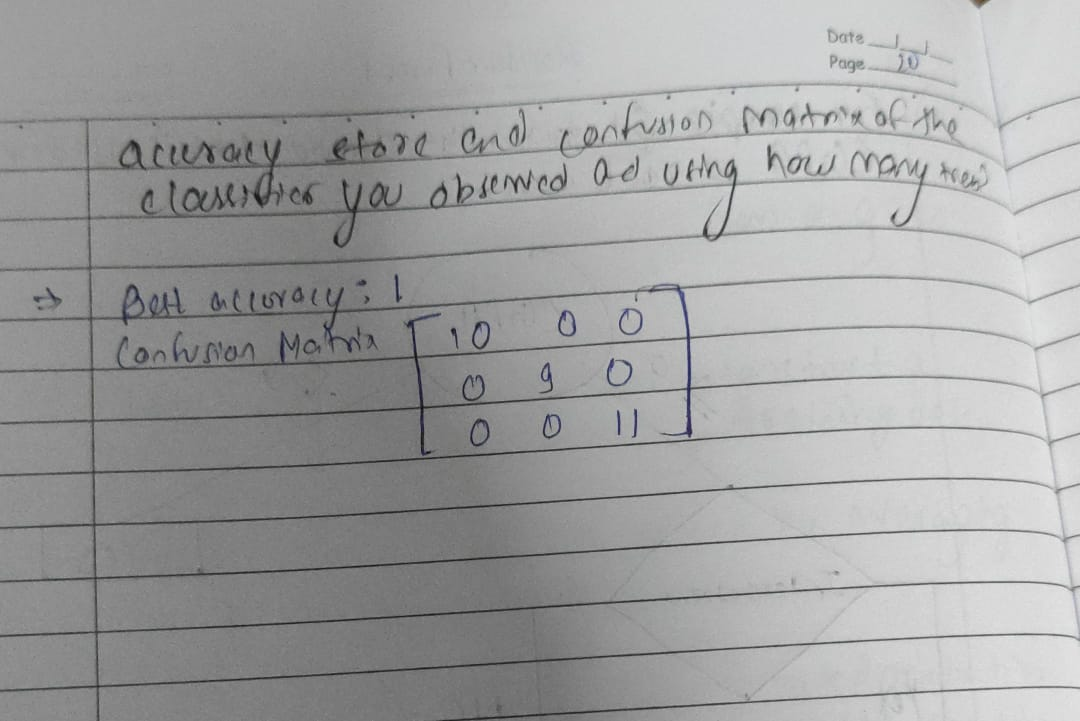 Date
Page 20
accuracy store and confusion matrix of the
classifier you observed ad using how many trees
⇒ Best accuracy: 1
Confusion Matrix
10 0 0
0 9 0
0 0 11